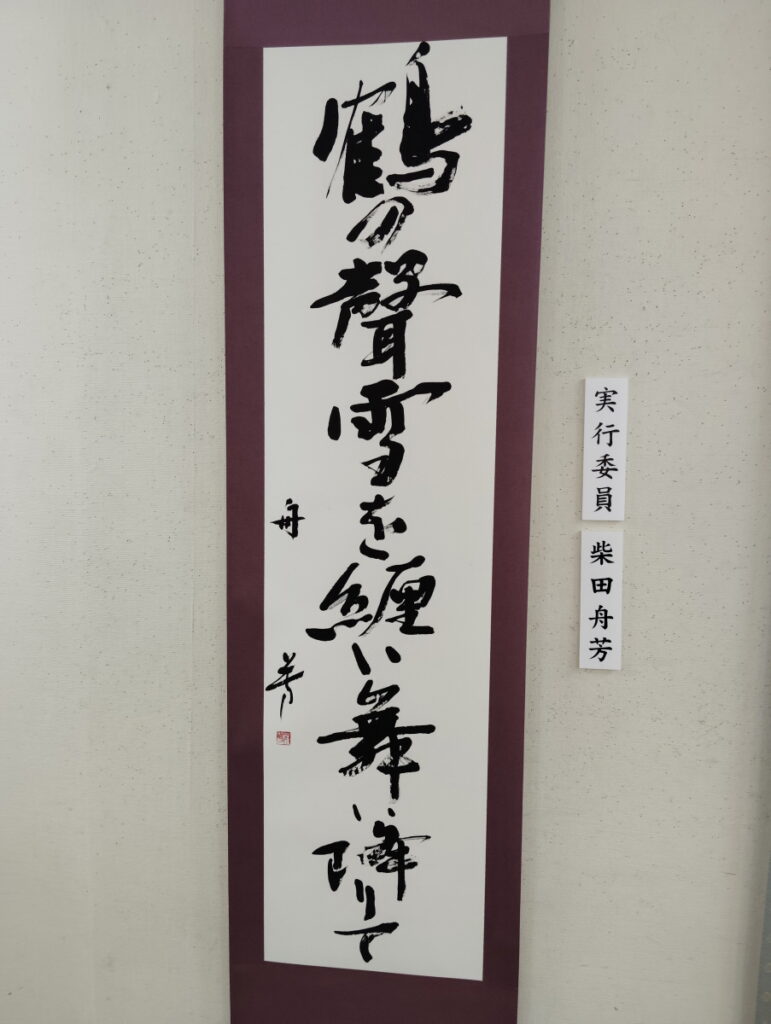 鶴の聲雪を纏い舞い降りて
舟芳
実行委員
柴田舟芳